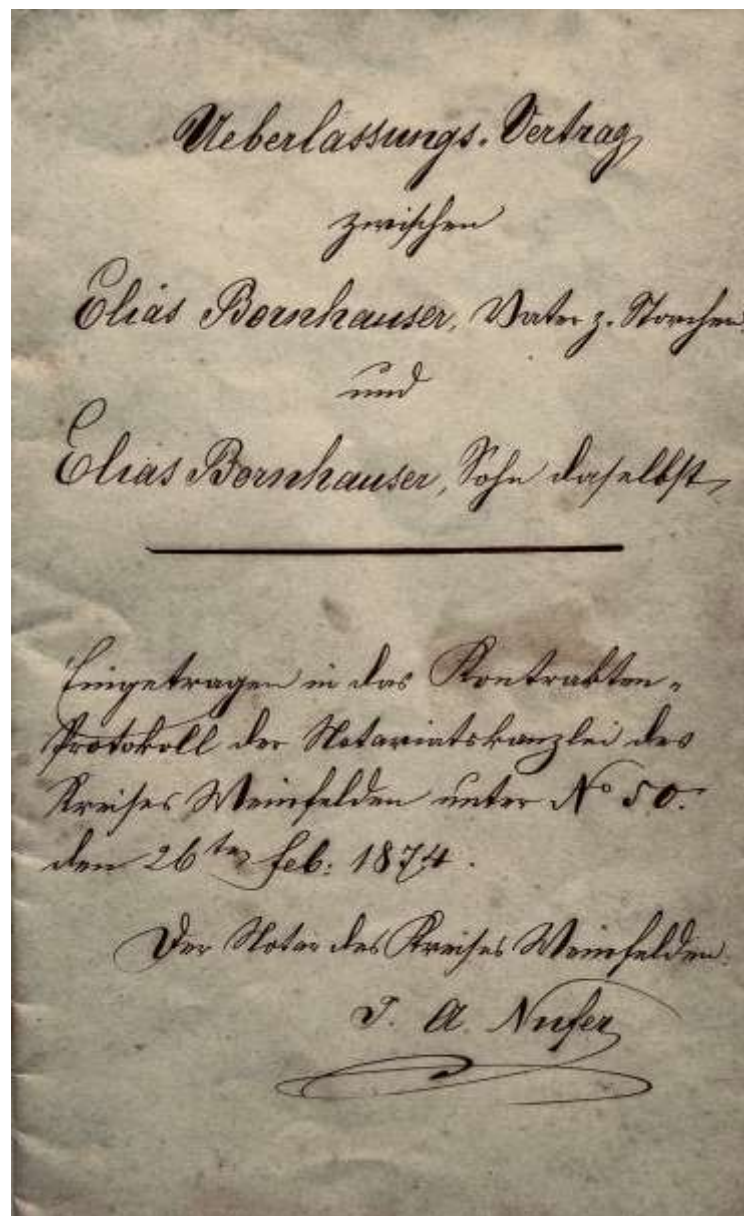 Ueberlassungs-Vertrag
zwischen
Elias Bornhauser, Vater z. Storchen
und
Elias Bornhauser, Sohn daselbst
Eingetragen in das Kontrakten-
Protokoll der Notariatskanzlei des
Kreises Weinfelden unter No 50.
den 26ten Feb: 1874.
Der Notar des Kreises Weinfelden:
J. A. Nufer